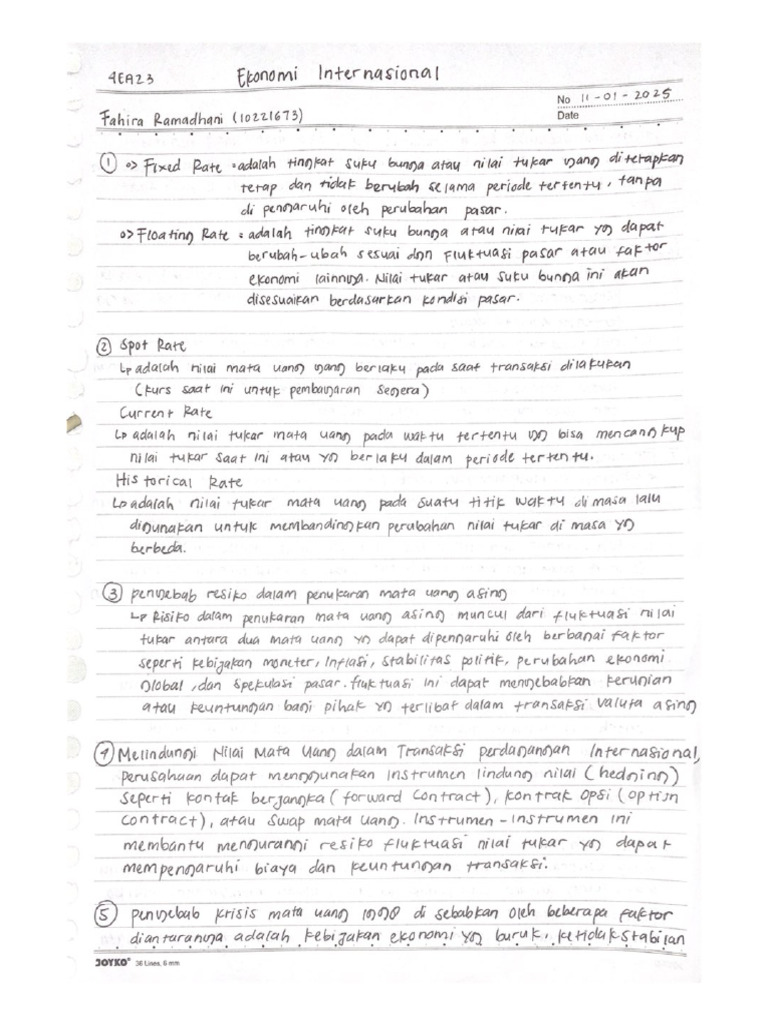 4EA23 Ekonomi Internasional
No 11-01-2025
Fahira Ramadhani (10221673) Date
① => Fixed Rate = adalah tingkat suku bunga atau nilai tukar yang ditetapkan
tetap dan tidak berubah selama periode tertentu, tanpa
di pengaruhi oleh perubahan pasar.
=> Floating Rate = adalah tingkat suku bunga atau nilai tukar yg dapat
berubah-ubah sesuai dgn Fluktuasi pasar atau faktor
ekonomi lainnya. Nilai tukar atau suku bunga ini akan
disesuaikan berdasarkan kondisi pasar.
② Spot Rate
↳ adalah nilai mata uang yang berlaku pada saat transaksi dilakukan
(kurs saat ini untuk pembayaran segera)
Current Rate
↳ adalah nilai tukar mata uang pada waktu tertentu yg bisa mencangkup
nilai tukar saat ini atau yg berlaku dalam periode tertentu.
Historical Rate
↳ adalah nilai tukar mata uang pada suatu titik waktu di masa lalu
digunakan untuk membandingkan perubahan nilai tukar di masa yg
berbeda.
③ penyebab resiko dalam penukaran mata uang asing
↳ Risiko dalam penukaran mata uang asing muncul dari fluktuasi nilai
tukar antara dua mata uang yg dapat dipengaruhi oleh berbagai faktor
seperti kebijakan moneter, inflasi, stabilitas politik, perubahan ekonomi
global, dan spekulasi pasar. fluktuasi ini dapat menyebabkan kerugian
atau keuntungan bagi pihak yg terlibat dalam transaksi valuta asing
④ Melindungi Nilai Mata Uang dalam Transaksi perdagangan Internasional,
perusahaan dapat menggunakan instrumen lindung nilai (hedging)
seperti kontak berjangka (forward contract), kontrak opsi (option
contract), atau swap mata uang. Instrumen-instrumen ini
membantu mengurangi resiko fluktuasi nilai tukar yg dapat
mempengaruhi biaya dan keuntungan transaksi.
⑤ penyebab krisis mata uang 1998 di sebabkan oleh beberapa faktor
diantaranya adalah kebijakan ekonomi yg buruk, ketidakstabilan
JOYKO® 36 Lines, 6 mm